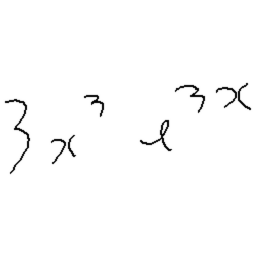 3x³ e³ˣ